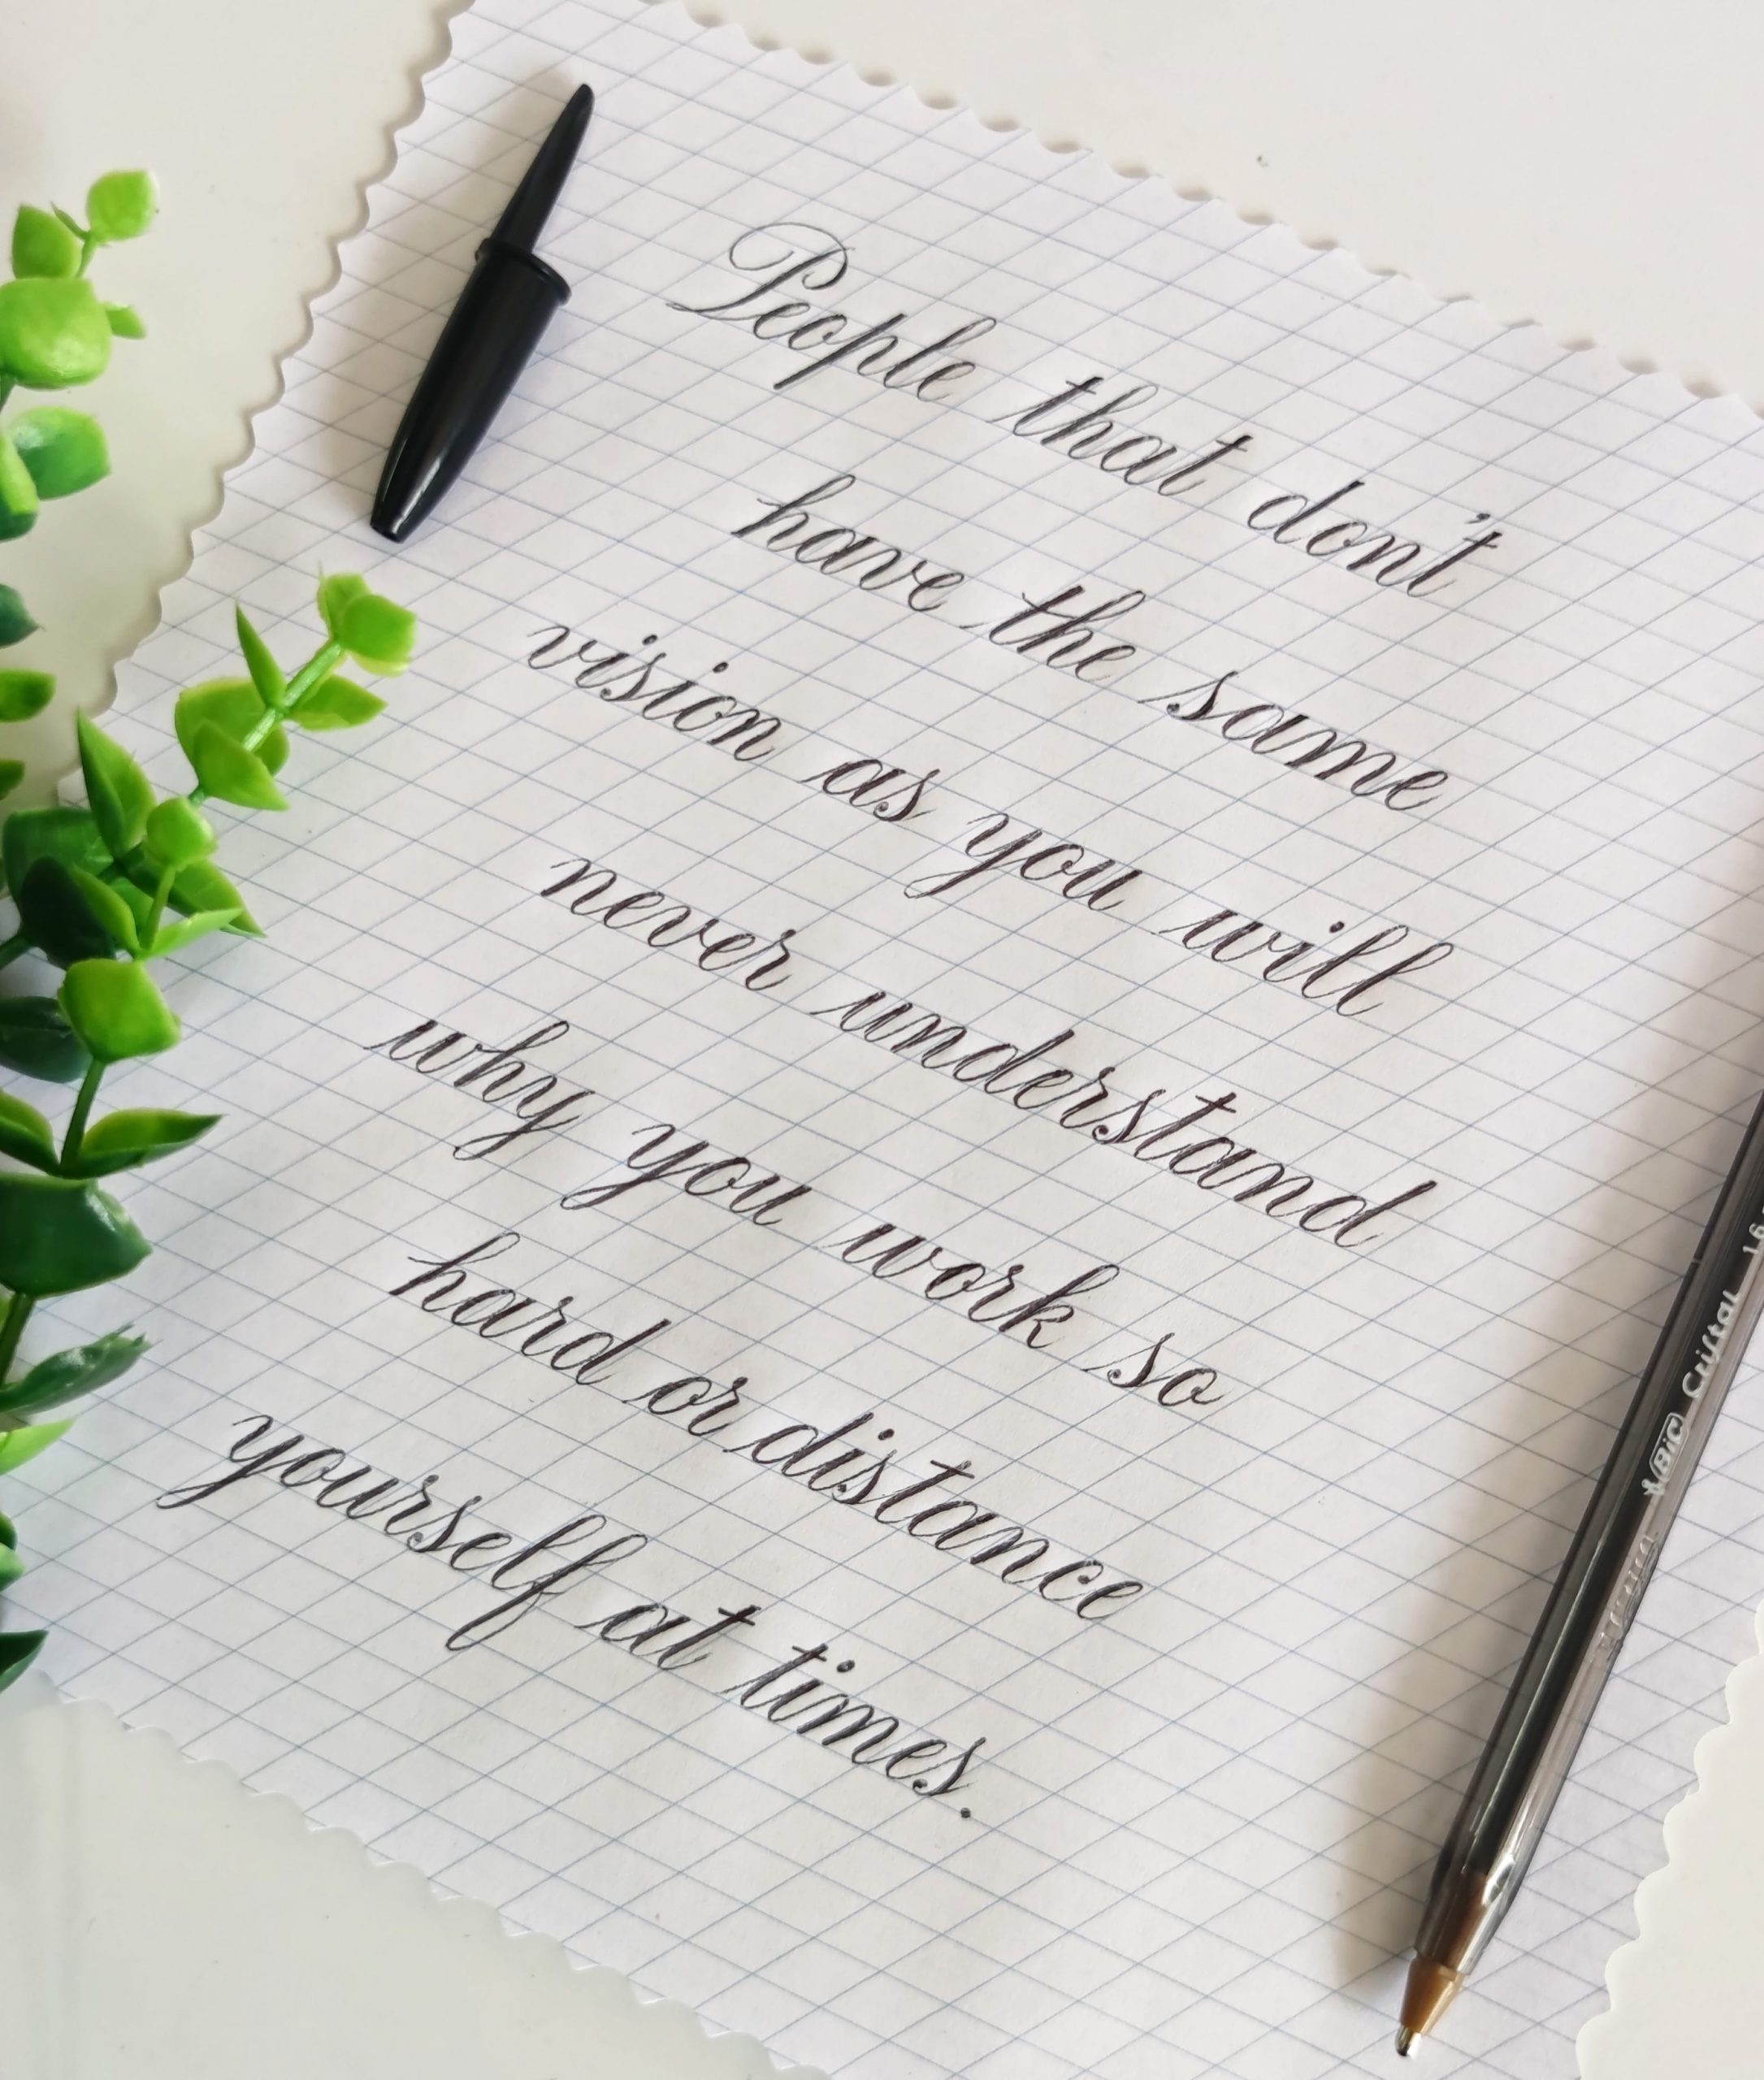 People that don't
have the same
vision as you will
never understand
why you work so
hard or distance
yourself at times.
BIC Cristal 1.6